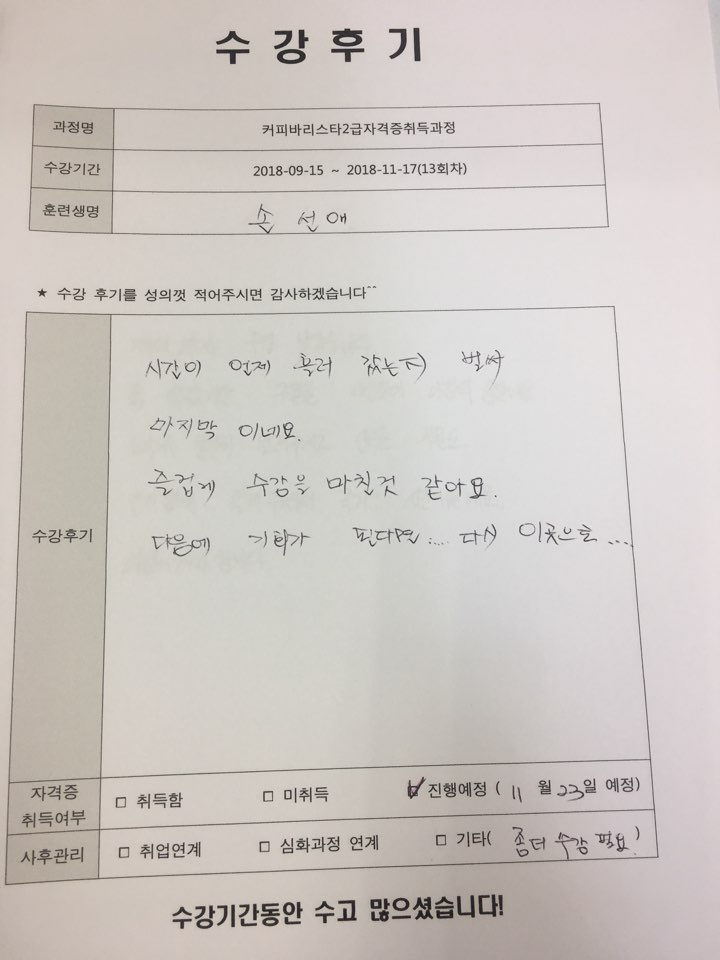 수 강 후 기
과정명 커피바리스타2급자격증취득과정
수강기간 2018-09-15 ~ 2018-11-17(13회차)
훈련생명 손 선 애
★ 수강 후기를 성의껏 적어주시면 감사하겠습니다^^
시간이 언제 흘러 갔는지 벌써
마지막 이네요.
수강후기
즐겁게 수강을 마칠것 같아요.
다음에 기회가 된다면..... 다시 이곳으로 ...
자격증 취득여부 □ 취득함 □ 미취득 ☑ 진행예정 ( 11 월 23일 예정)
사후관리 □ 취업연계 □ 심화과정 연계 □ 기타( 좀더 수강 필요. )
수강기간동안 수고 많으셨습니다!